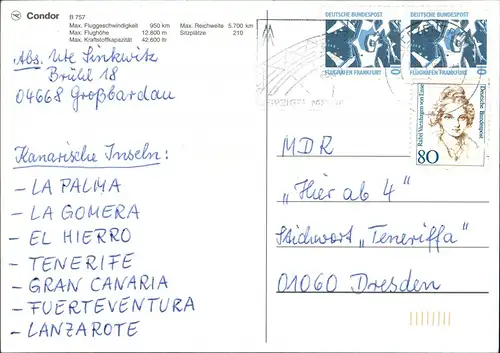 Condor
B 757
Max. Fluggeschwindigkeit 950 km
Max. Flughöhe 12.800 m
Max. Kraftstoffkapazität 42.600 ltr
Max. Reichweite 5.700 km
Sitzplätze 210
Abs. Ute Sinkwitz
Brühl 18
04668 Großbardau
Kanarische Inseln:
- LA PALMA
- LA GOMERA
- EL HIERRO
- TENERIFE
- GRAN CANARIA
- FUERTEVENTURA
- LANZAROTE
DEUTSCHE BUNDESPOST
FLUGHAFEN FRANKFURT
10
DEUTSCHE BUNDESPOST
FLUGHAFEN FRANKFURT
10
Deutsche Bundespost
Rahel Varnhagen von Ense
80
MDR
„Hier ab 4"
Stichwort „Teneriffa"
01060 Dresden